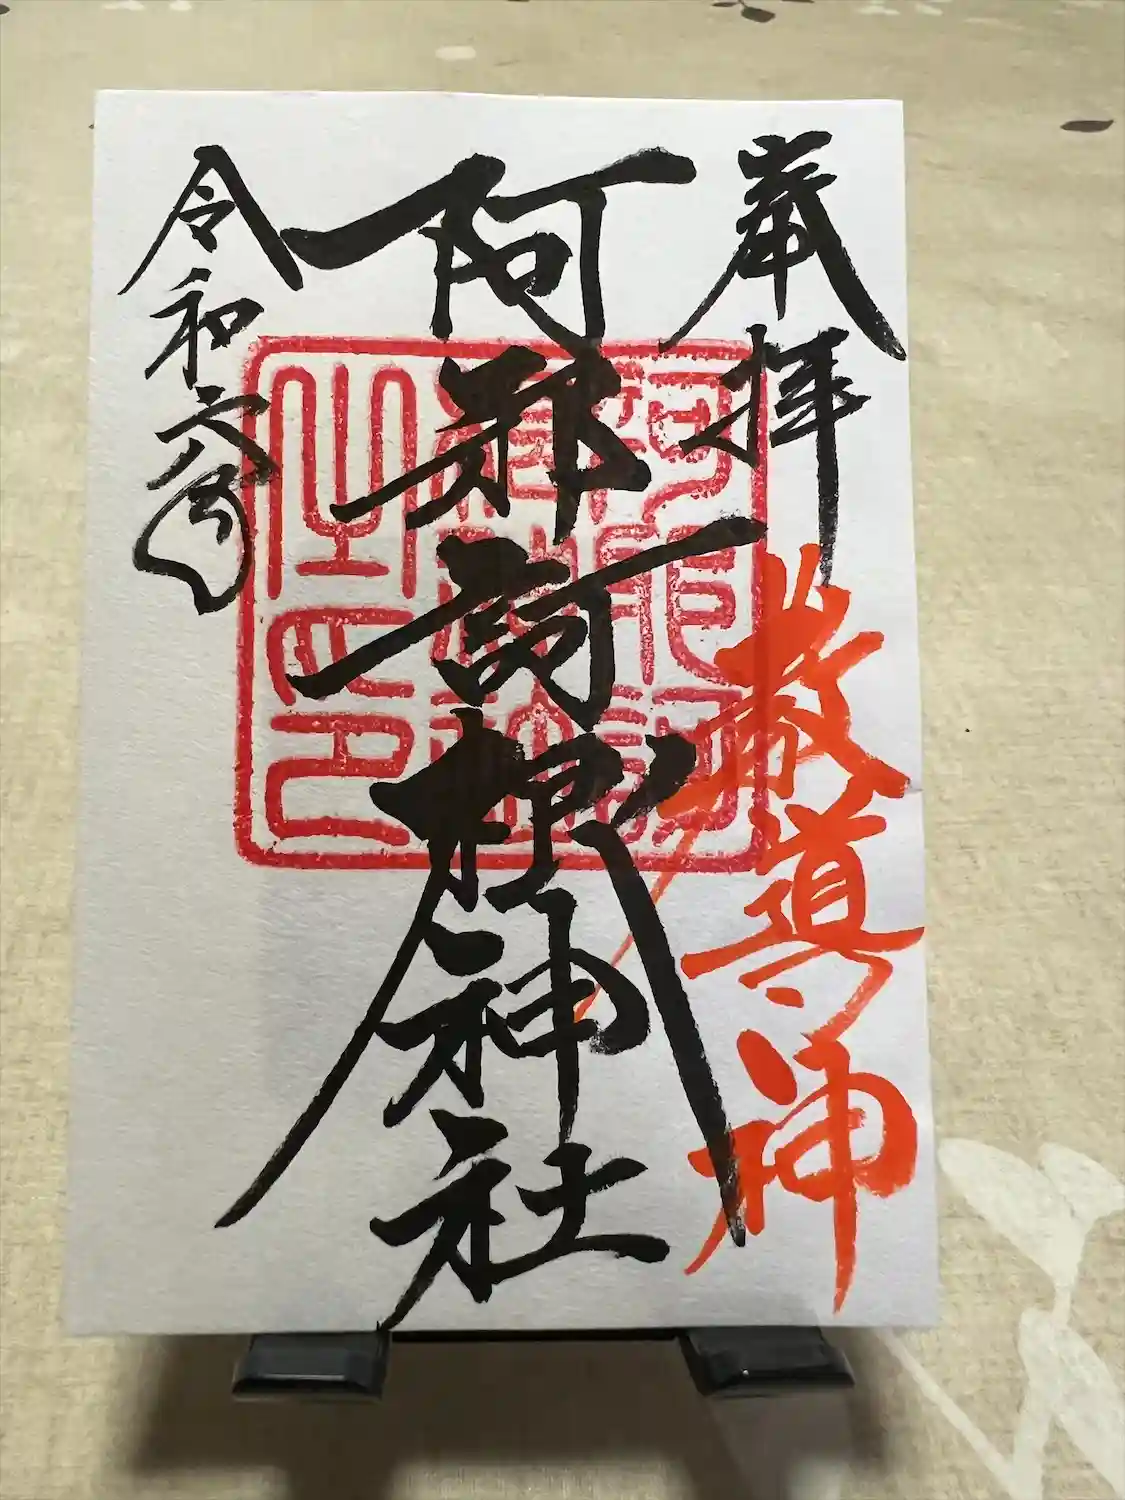 奉拝
教導神
阿邪訶根神社
阿邪訶
根神社
之印
令和六年